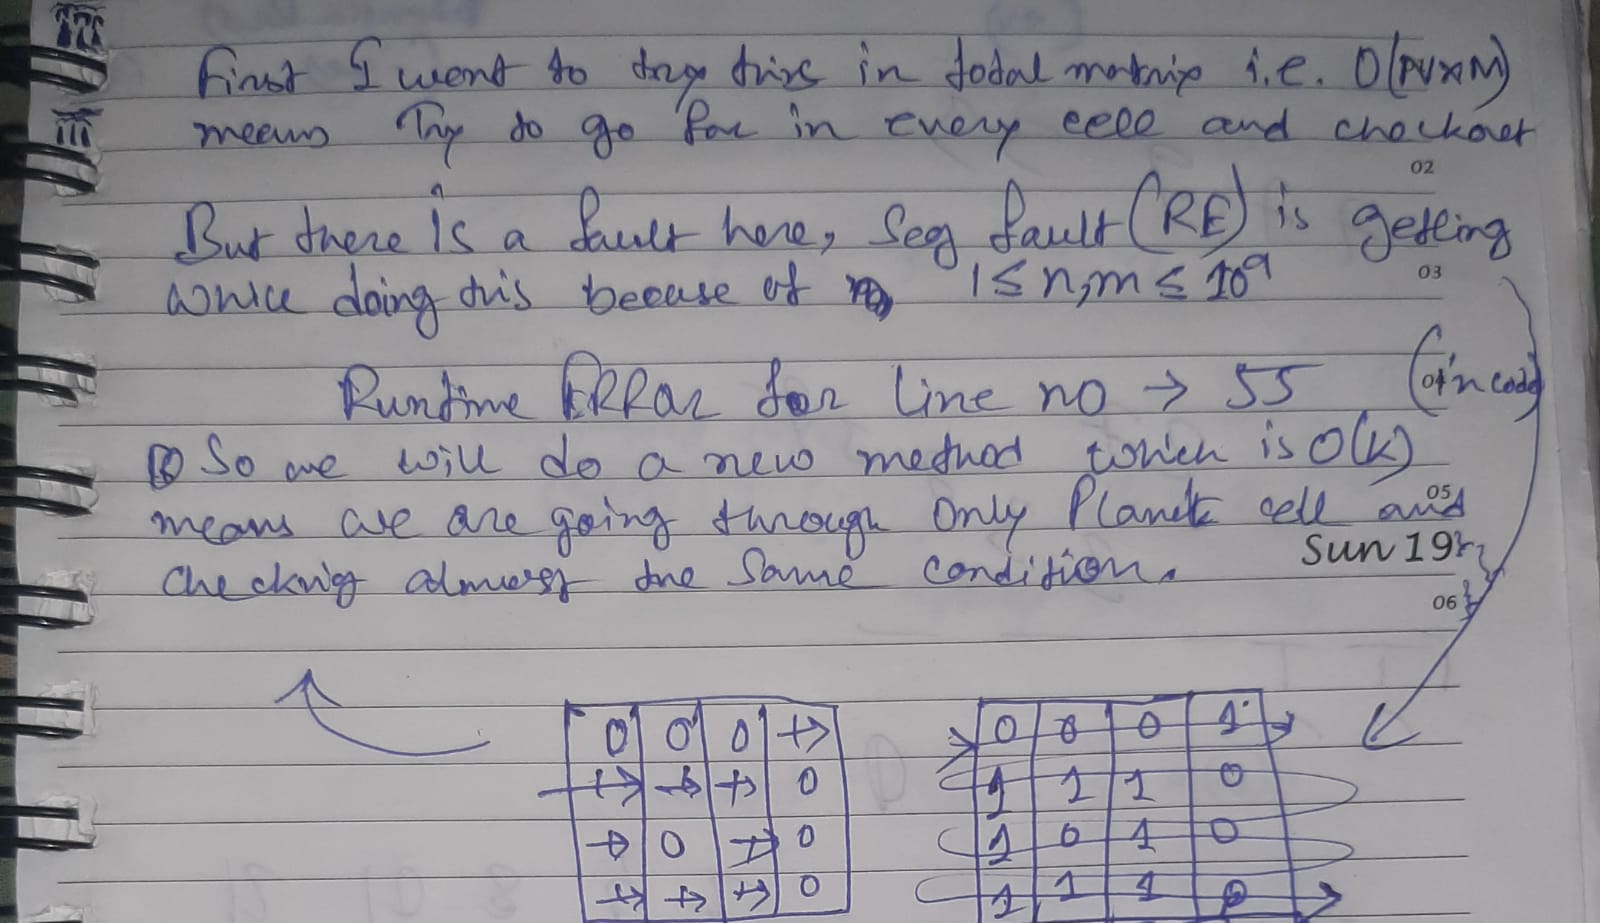 First I went to try this in total matrix i.e. O(NXM)
means Try to go for in every cell and checkout
02
But there is a fault here, Seg fault (RE) is getting
while doing this becuse of 1 ≤ n,m ≤ 10⁹
03
Runtime ERROR for line no → 55 (in code)
04
So we will do a new method which is O(K)
means we are going through only Planet cell and
05
Sun 19
checking almost the same condition.
06
0 0 0 →
→ → → 0
→ 0 → 0
→ → → 0
0 0 0 1
1 1 1 0
1 0 1 0
1 1 1 0